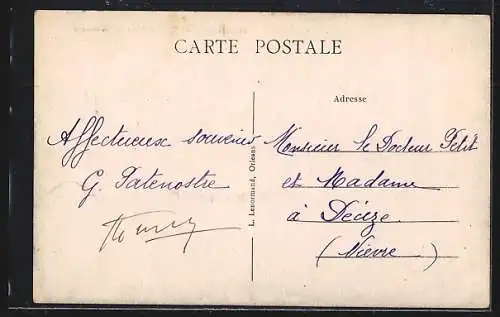 CARTE POSTALE
Adresse
Affectueux souvenir
G. Patenostre
L. Lenormand, Orléans
Monsieur le Docteur Petit
et Madame
à Décize
(Nièvre)